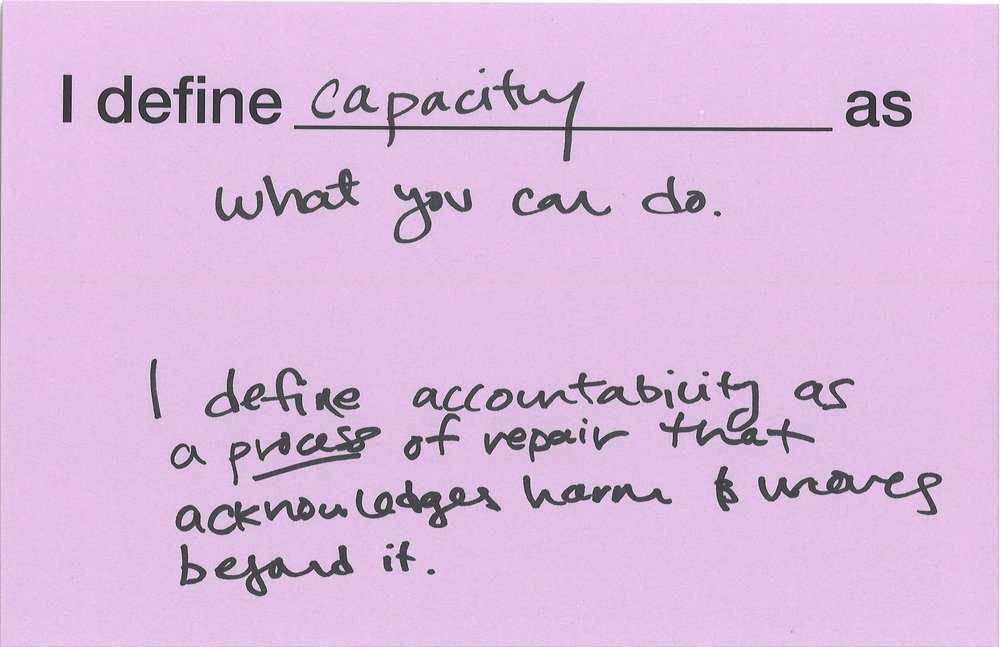 I define capacity as
what you can do.
I define accountability as
a process of repair that
acknowledges harm & moves
beyond it.